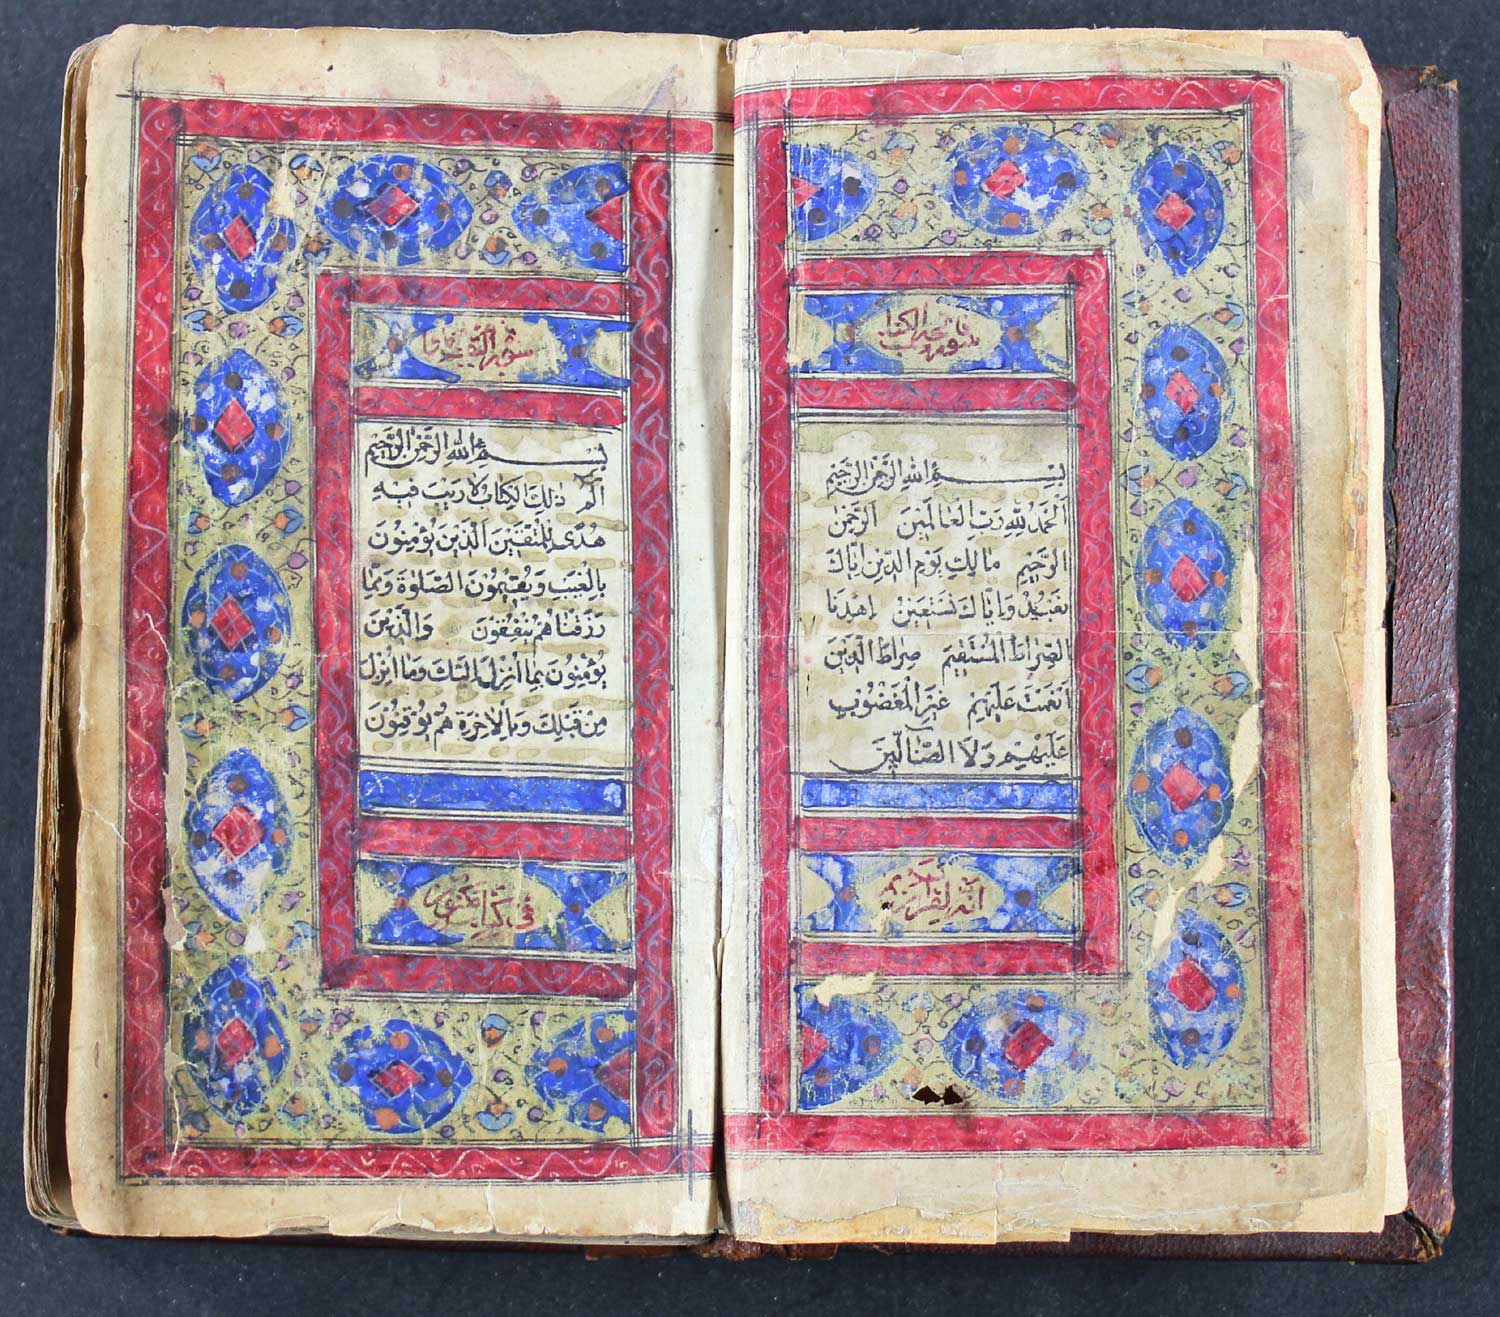 سورة فاتحة الكتاب
بِسْمِ اللهِ الرَّحْمٰنِ الرَّحِيْمِ
اَلْحَمْدُ لِلّٰهِ رَبِّ الْعَالَمِيْنَ الرَّحْمٰنِ
الرَّحِيْمِ مَالِكِ يَوْمِ الدِّيْنِ اِيَّاكَ
نَعْبُدُ وَاِيَّاكَ نَسْتَعِيْنُ اِهْدِنَا
الصِّرَاطَ الْمُسْتَقِيْمَ صِرَاطَ الَّذِيْنَ
اَنْعَمْتَ عَلَيْهِمْ غَيْرِ الْمَغْضُوْبِ
عَلَيْهِمْ وَلَا الضَّآلِّيْنَ
انه لقرآن كريم
سورة البقرة
بِسْمِ اللهِ الرَّحْمٰنِ الرَّحِيْمِ
الٓمٓ ذٰلِكَ الْكِتَابُ لَا رَيْبَ فِيْهِ
هُدًى لِلْمُتَّقِيْنَ اَلَّذِيْنَ يُؤْمِنُوْنَ
بِالْغَيْبِ وَيُقِيْمُوْنَ الصَّلٰوةَ وَمِمَّا
رَزَقْنَاهُمْ يُنْفِقُوْنَ وَالَّذِيْنَ
يُؤْمِنُوْنَ بِمَا اُنْزِلَ اِلَيْكَ وَمَا اُنْزِلَ
مِنْ قَبْلِكَ وَبِالْاٰخِرَةِ هُمْ يُوْقِنُوْنَ
في كتاب مكنون